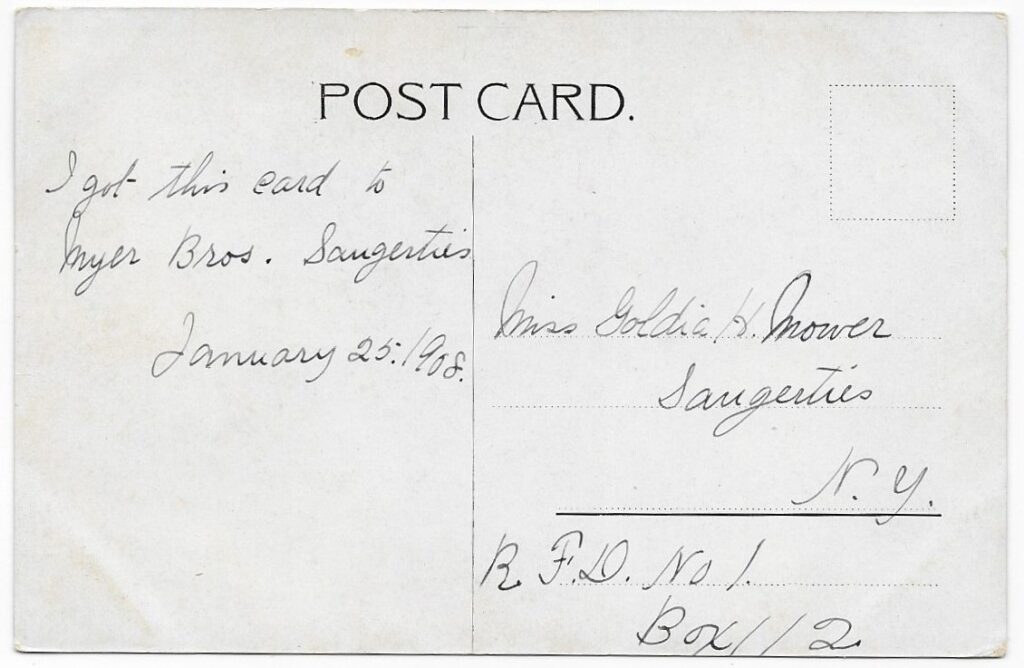 POST CARD.
I got this card to
Myer Bros. Saugerties
January 25. 1908.
Miss Goldia H. Mower
Saugerties
N. Y.
R. F. D. No 1.
Box 112